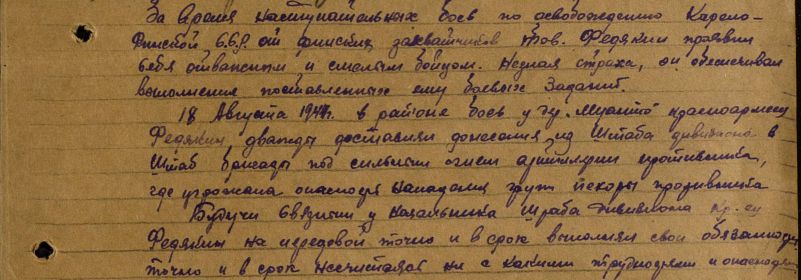 За время наступательных боев по освобождению Карело-
Финской С.С.Р. от финских захватчиков тов. Федякин проявил
себя отважным и смелым бойцом. Незная страха, он обеспечивал
выполнения поставленных ему боевых заданий.
18 Августа 1944г. в районе боев у дер. красноармеец
Федякин, дважды доставлял донесения из Штаба дивизиона в
Штаб бригады под сильным огнем артиллерии противника,
где угрожала опасность нападения групп противника
Будучи связным у Начальника штаба дивизиона кр-ец
Федякин на передовой точно и в срок выполнял свои обязанности
точно и в срок несчитаясь ни с какими трудностями и опасностями